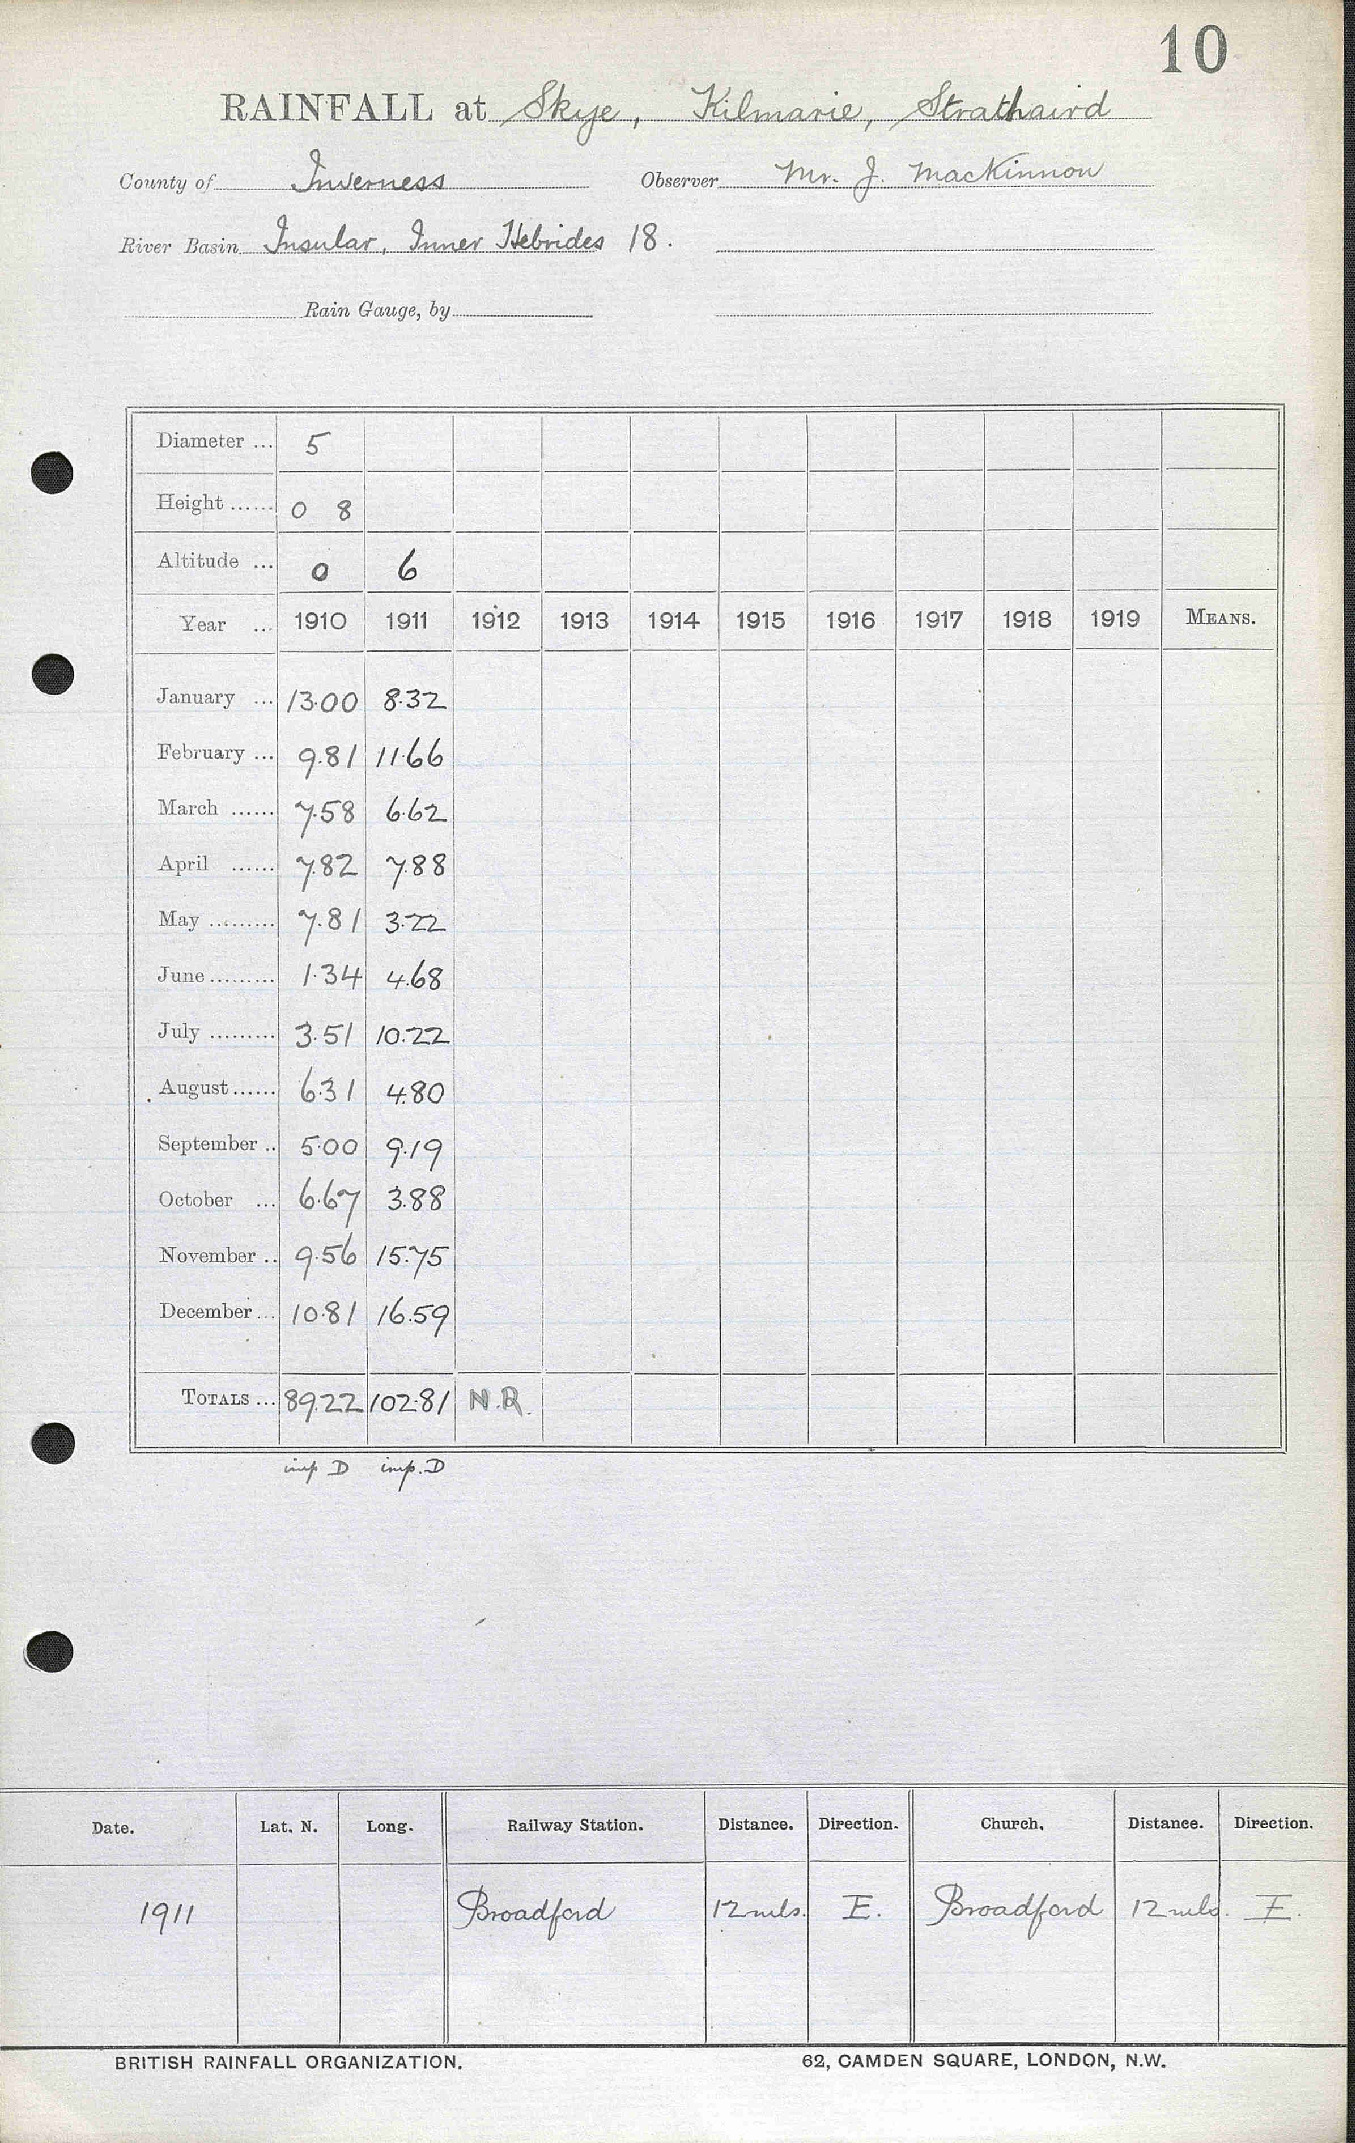 10
RAINFALL at Skye, Kilmarie, Strathaird
County of Inverness Observer Mr. J. MacKinnon
River Basin Insular, Inner Hebrides 18.
Rain Gauge, by
Diameter ... 5
Height ...... 0 8
Altitude ... 0 6
Year ... 1910 1911 1912 1913 1914 1915 1916 1917 1918 1919 MEANS.
January ... 13.00 8.32
February ... 9.81 11.66
March ...... 7.58 6.62
April ...... 7.82 7.88
May ......... 7.81 3.22
June ......... 1.34 4.68
July ......... 3.51 10.22
August ...... 6.31 4.80
September .. 5.00 9.19
October ... 6.67 3.88
November .. 9.56 15.75
December ... 10.81 16.59
TOTALS ... 89.22 102.81 N.R.
imp D imp. D
Date. Lat. N. Long. Railway Station. Distance. Direction. Church. Distance. Direction.
1911 Broadford 12 mls. E. Broadford 12 mls. E.
BRITISH RAINFALL ORGANIZATION. 62, CAMDEN SQUARE, LONDON, N.W.